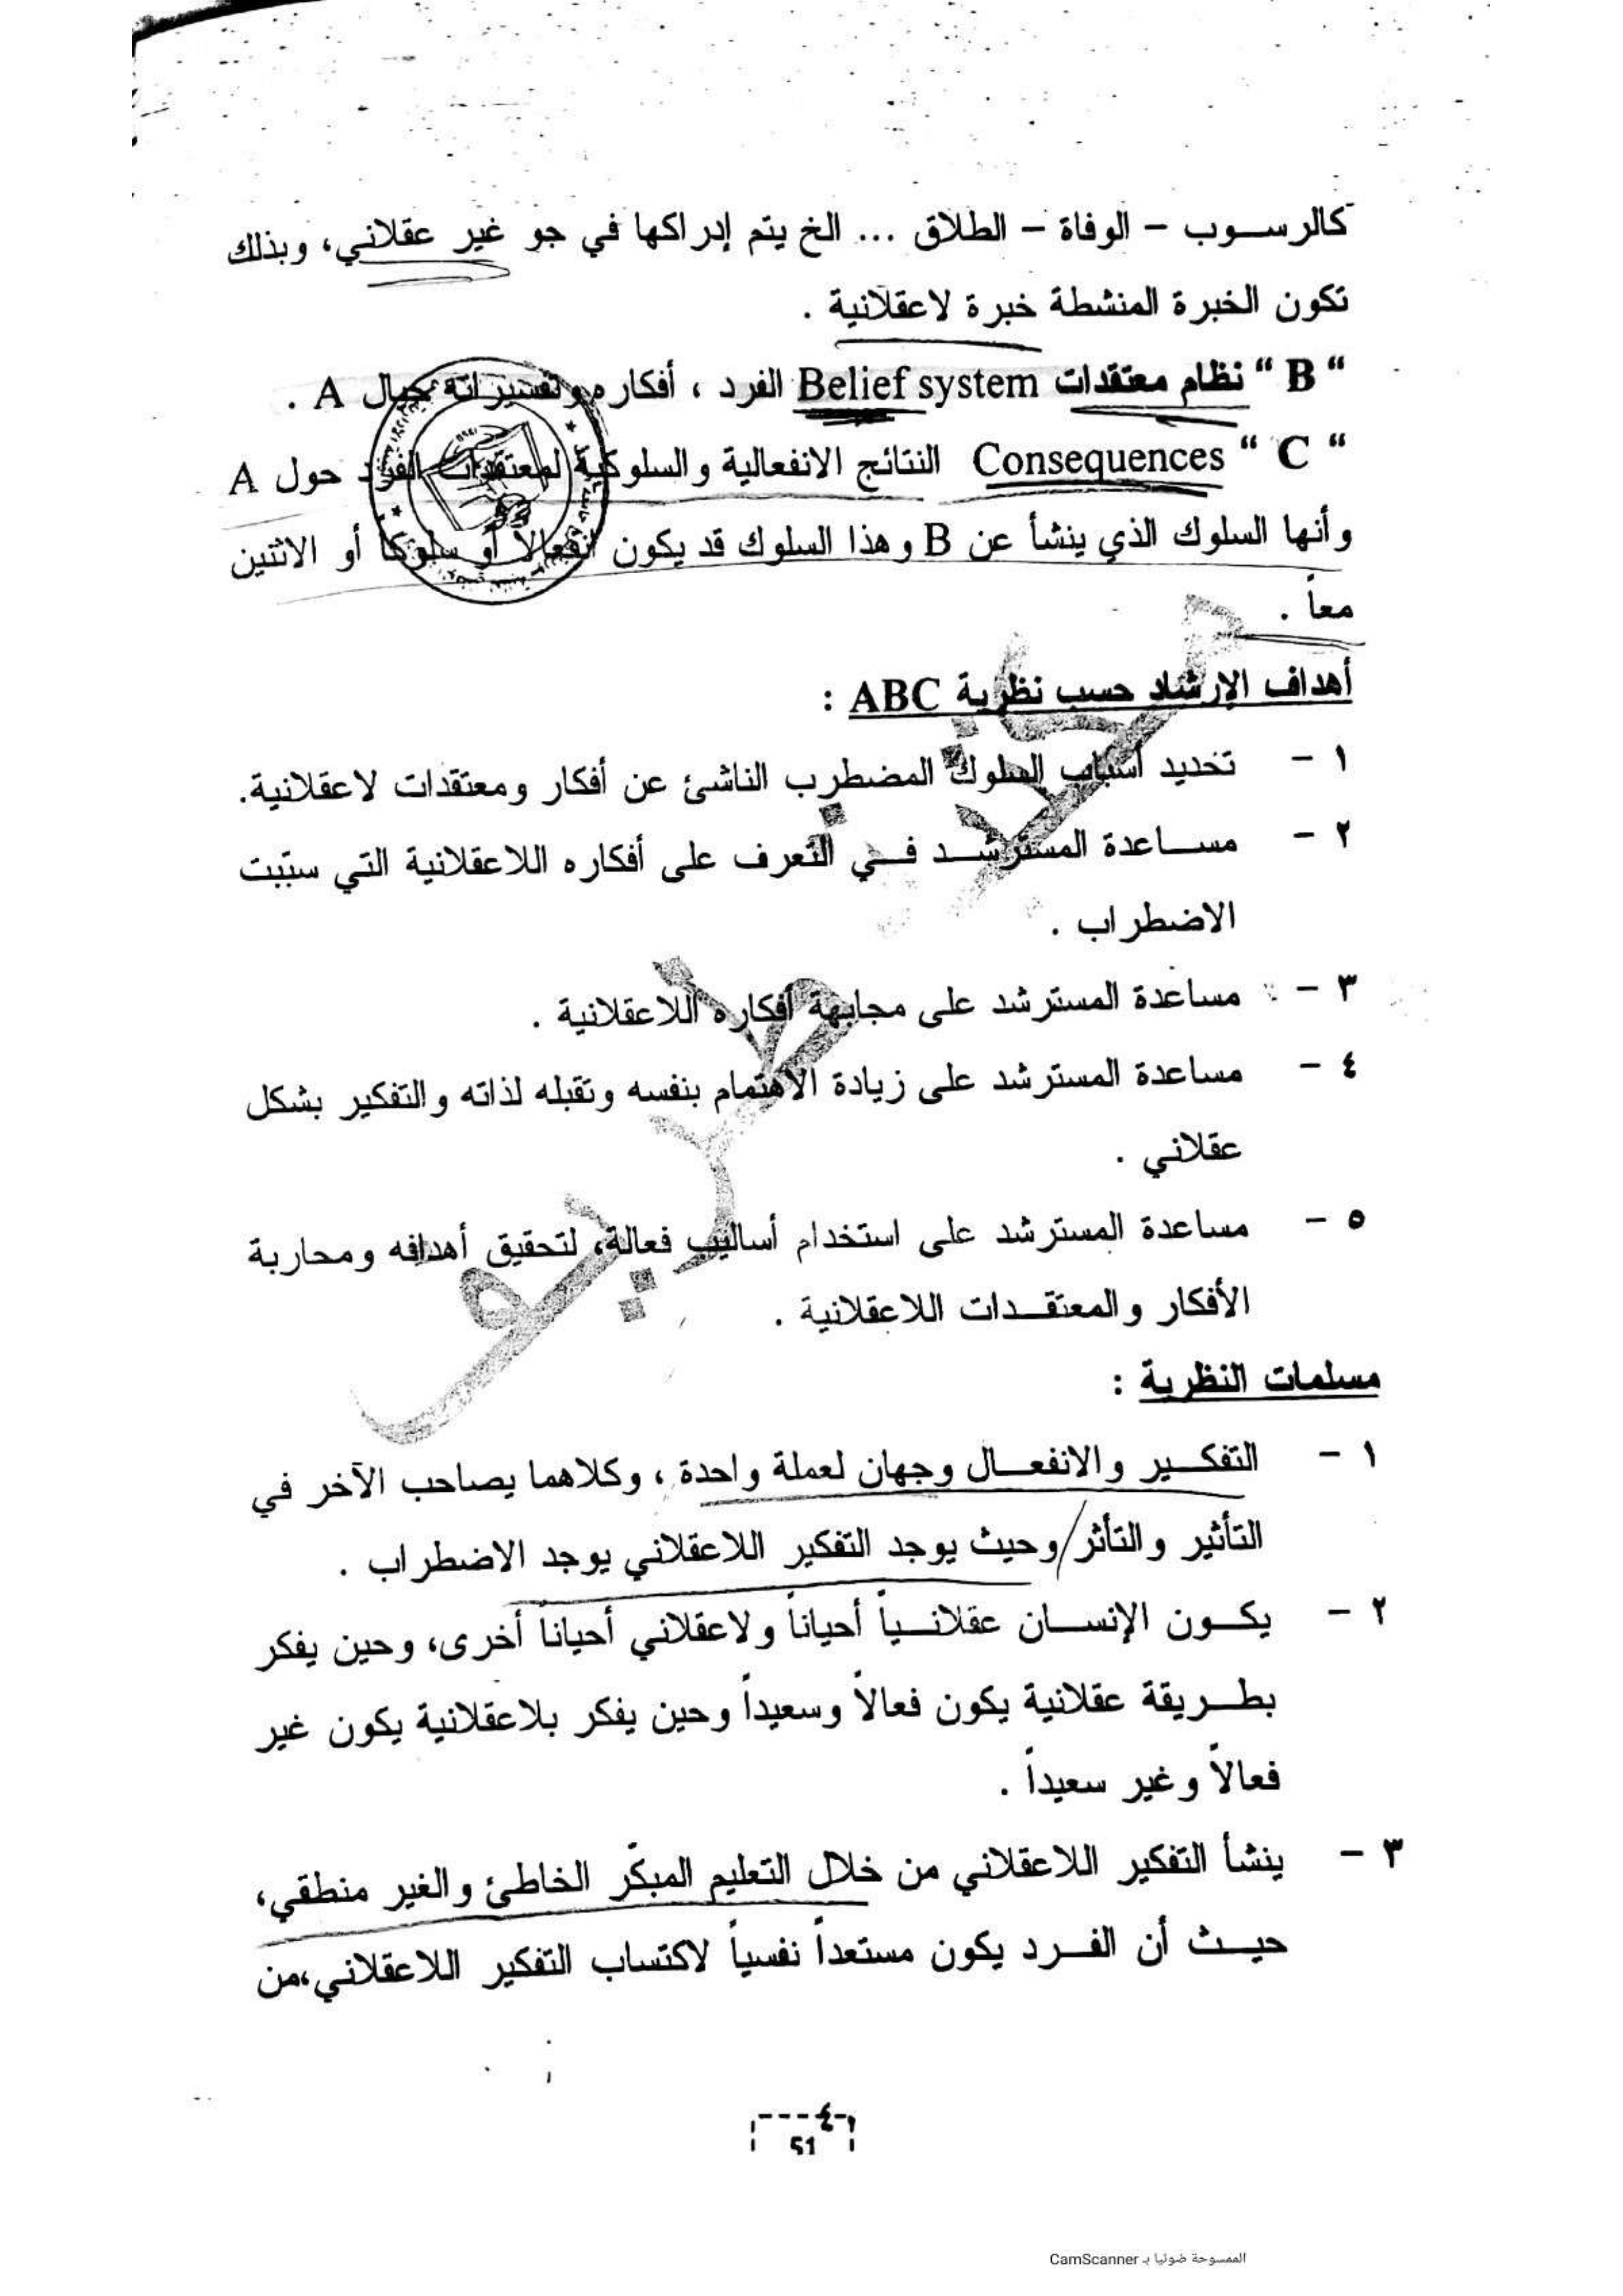 كالرسوب – الوفاة – الطلاق ... الخ يتم إدراكها في جو غير عقلاني، وبذلك
تكون الخبرة المنشطة خبرة لاعقلانية .
“ B ” نظام معتقدات Belief system الفرد ، أفكاره وتفسيراته حيال A .
“ C ” Consequences النتائج الانفعالية والسلوكية لمعتقدات الفرد حول A
وأنها السلوك الذي ينشأ عن B وهذا السلوك قد يكون انفعالاً أو سلوكاً أو الاثنين
معاً .
أهداف الإرشاد حسب نظرية ABC :
١ – تحديد أسباب السلوك المضطرب الناشئ عن أفكار ومعتقدات لاعقلانية.
٢ – مساعدة المسترشد في التعرف على أفكاره اللاعقلانية التي سببت
الاضطراب .
٣ – مساعدة المسترشد على مجابهة أفكاره اللاعقلانية .
٤ – مساعدة المسترشد على زيادة الاهتمام بنفسه وتقبله لذاته والتفكير بشكل
عقلاني .
٥ – مساعدة المسترشد على استخدام أساليب فعالة، لتحقيق أهدافه ومحاربة
الأفكار والمعتقدات اللاعقلانية .
مسلمات النظرية :
١ – التفكير والانفعال وجهان لعملة واحدة ، وكلاهما يصاحب الآخر في
التأثير والتأثر/وحيث يوجد التفكير اللاعقلاني يوجد الاضطراب .
٢ – يكون الإنسان عقلانياً أحياناً ولاعقلاني أحياناً أخرى، وحين يفكر
بطريقة عقلانية يكون فعالاً وسعيداً وحين يفكر بلاعقلانية يكون غير
فعالاً وغير سعيداً .
٣ – ينشأ التفكير اللاعقلاني من خلال التعليم المبكّر الخاطئ والغير منطقي،
حيث أن الفرد يكون مستعداً نفسياً لاكتساب التفكير اللاعقلاني،من
51
الممسوحة ضوئيا بـ CamScanner